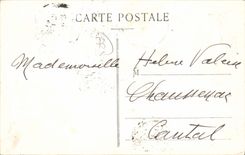 CARTE POSTALE
Mademoiselle Helene
Chaussenac
Cantal